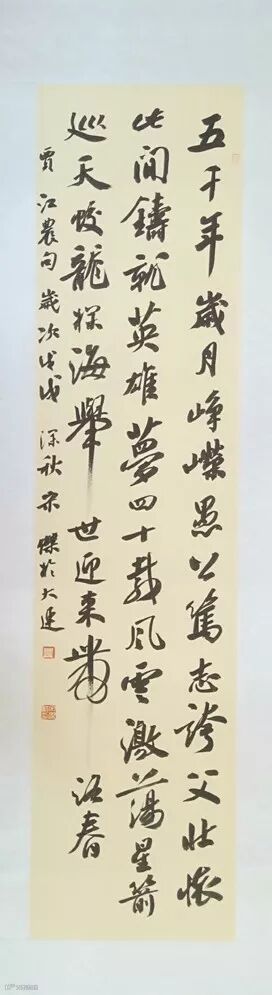 五千年歲月峥嶸愚公篤志誇父壯懷
此間鑄就英雄夢四十載風雲激蕩星箭
巡天蛟龍探海舉世迎來帶路春
賈江農句歲次戊戌深秋宋傑於大連